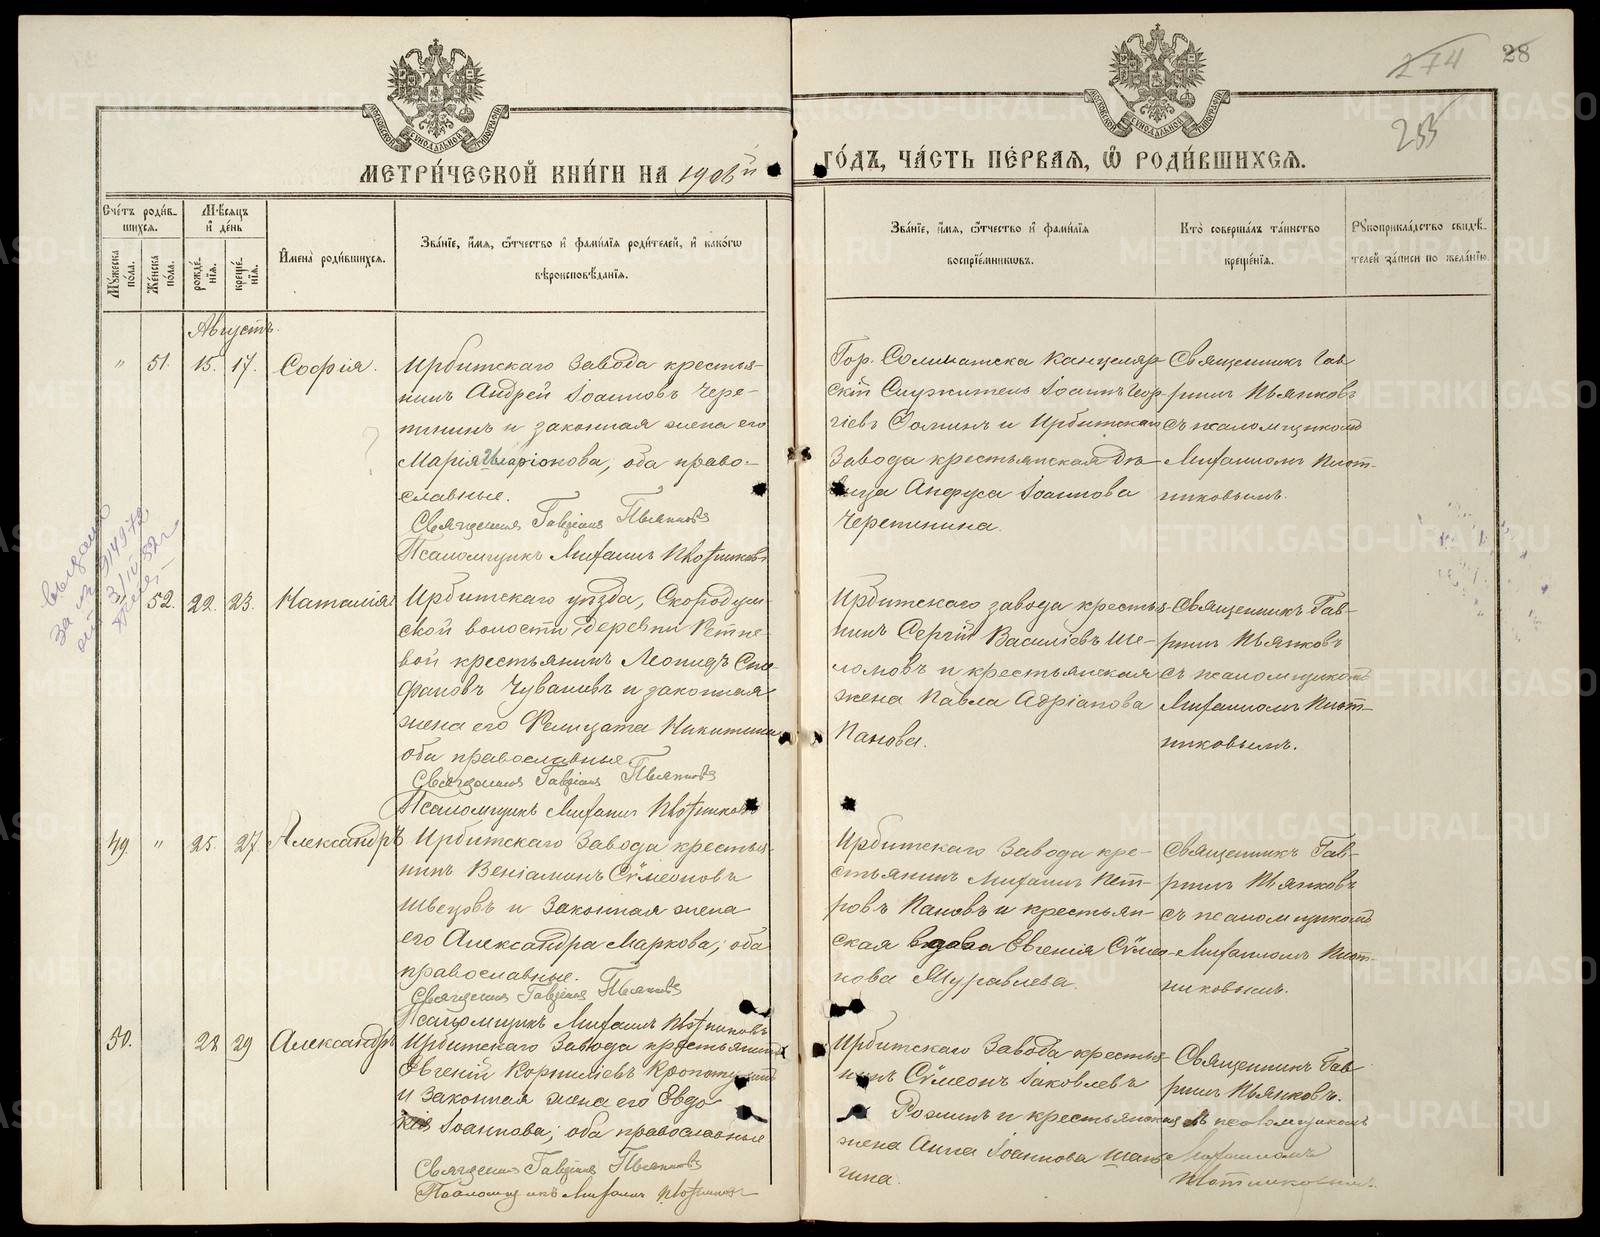 274
28
255
МЕТРИ́ЧЕСКОЙ КНИ́ГИ НА 1908й
ГО́ДЪ, ЧА́СТЬ ПЕ́РВАЯ, Ѡ РОДИ́ВШИХСЯ.
Сче́тъ роди́в-
шихся.
Му́жеска по́ла.
Же́нска по́ла.
Мѣ́сяцъ
и҆ де́нь
рожде́-
нїя.
креще́-
нїя.
И҆мена̀ роди́вшихся.
Зва́нїе, и҆́мя, ѻ҆́тчество и҆ фами́лїя роди́телей, и҆ како́гѡ
вѣроисповѣ́данїя.
Зва́нїе, и҆́мя, ѻ҆́тчество и҆ фами́лїя
воспрїе́мникѡвъ.
Кто̀ соверша́лъ та́инство
креще́нїя.
Рꙋкоприкла́дство свидѣ́-
телей за́писи по жела́нїю.
Августъ.
" 51. 15. 17. Софія.
Ирбитскаго Завода крестья-
нинъ Андрей Іоанновъ Чере-
тининъ и законная жена его
Марія Иларіонова, оба право-
славные.
Священникъ Гавріилъ Пьянковъ
Псаломщикъ Михаилъ Плотниковъ
Гор. Соликамска канцеляр-
скій Служитель Іоаннъ Геор-
гіевъ Ѳоминъ и Ирбитскаго
Завода крестьянская Дѣ-
вица Анфуса Іоаннова
Черетинина.
Священникъ Гав-
ріилъ Пьянковъ
съ псаломщикомъ
Михаиломъ Плот-
никовымъ.
" 52. 22. 23. Наталія
Ирбитскаго уѣзда, Скородум-
ской волости, деревни Ретне-
вой крестьянинъ Леонидъ Сте-
фановъ Чувашевъ и законная
жена его Фелицата Никитина
оба православные
Священникъ Гавріилъ Пьянковъ
Псаломщикъ Михаилъ Плотниковъ
Ирбитскаго завода крестья-
нинъ Сергій Василіевъ Ше-
ломовъ и крестьянская
жена Павла Адріанова
Панова.
Священникъ Гав-
ріилъ Пьянковъ
съ псаломщикомъ
Михаиломъ Плот-
никовымъ.
49. " 25. 27. Александръ
Ирбитскаго Завода крестья-
нинъ Веніаминъ Сѵмеоновъ
Швецовъ и Законная жена
его Александра Маркова, оба
православные.
Священникъ Гавріилъ Пьянковъ
Псаломщикъ Михаилъ Плотниковъ
Ирбитскаго Завода кре-
стьянинъ Михаилъ Пет-
ровъ Пановъ и крестьян-
ская вдова Евгенія Сѵмео-
нова Муравлева.
Священникъ Гав-
ріилъ Пьянковъ
съ псаломщикомъ
Михаиломъ Плот-
никовымъ.
50. 28 29 Александръ
Ирбитскаго Завода крестьянинъ
Евгеній Корниліевъ
и Законная жена его Евдо-
кія Іоаннова; оба православные
Священникъ Гавріилъ Пьянковъ
Псаломщикъ Михаилъ Плотниковъ
Ирбитскаго Завода крестья-
нинъ Сѵмеонъ Іаковлевъ
и крестьянская
жена Анна Іоаннова
Священникъ Гав-
ріилъ Пьянковъ.
съ псаломщикомъ
Михаиломъ
Плотниковымъ.
METRIKI.GASO-URAL.RU